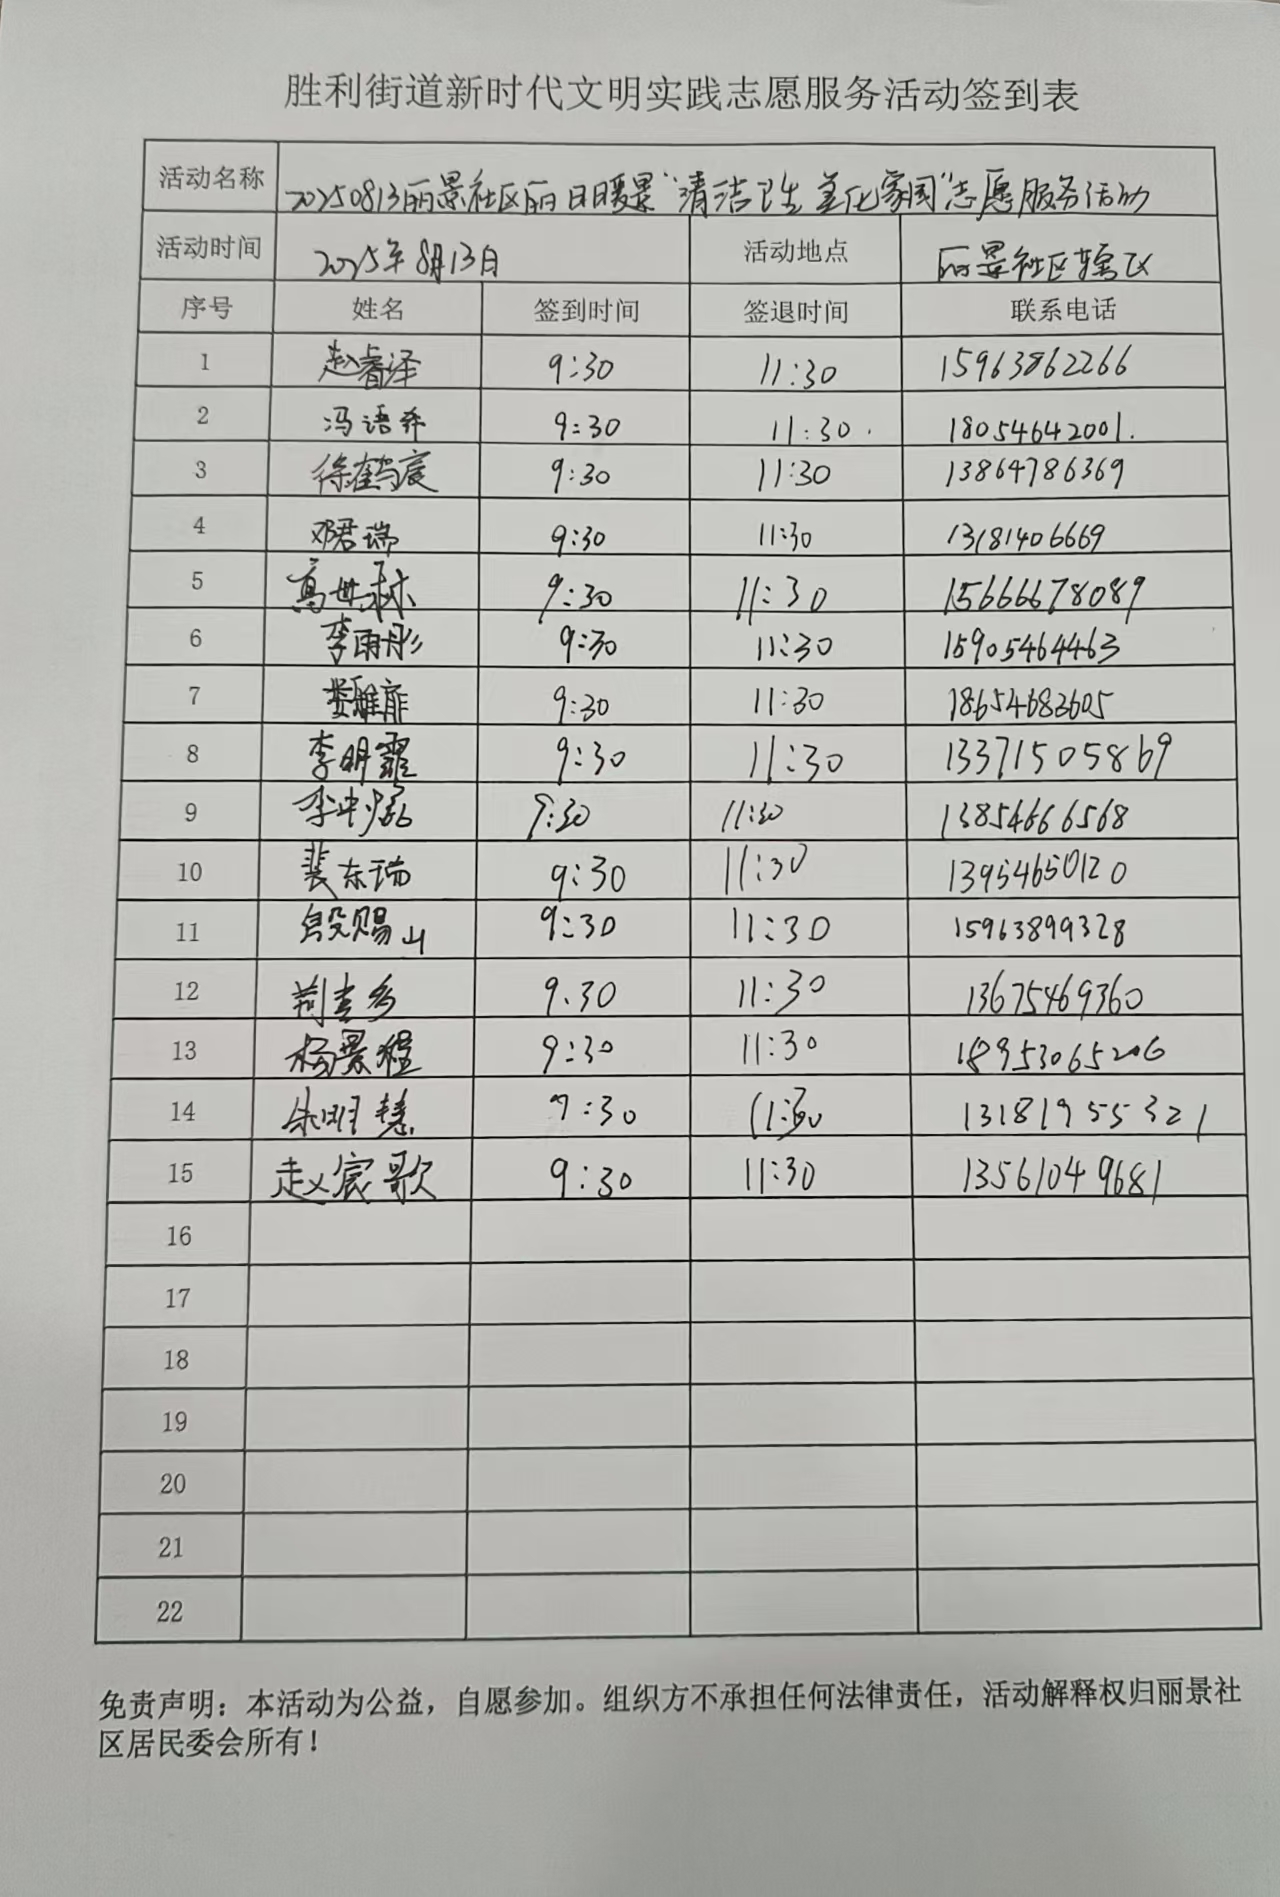 胜利街道新时代文明实践志愿服务活动签到表
活动名称 20250813丽景社区丽日暖景“清洁卫生 美化家园”志愿服务活动
活动时间 2025年8月13日 活动地点 丽景社区辖区
序号 姓名 签到时间 签退时间 联系电话
1 赵睿泽 9:30 11:30 15963862266
2 冯语希 9:30 11:30. 18054642001.
3 徐鹤宸 9:30 11:30 13864786369
4 邓君瑞 9:30 11:30 13181406669
5 高世 9:30 11:30 15666678089
6 李雨彤 9:30 11:30 15905464463
7 9:30 11:30 18654683605
8 李明霏 9:30 11:30 13371505869
9 李中 9:30 11:30 13854666568
10 裴东瑞 9:30 11:30 13954650120
11 段赐山 9:30 11:30 15963899328
12 9.30 11:30 13675469360
13 杨景程 9:30 11:30 18953065206
14 慧 9:30 11:30 13181955321
15 赵宸歌 9:30 11:30 13561049681
16
17
18
19
20
21
22
免责声明：本活动为公益，自愿参加。组织方不承担任何法律责任，活动解释权归丽景社
区居民委会所有！